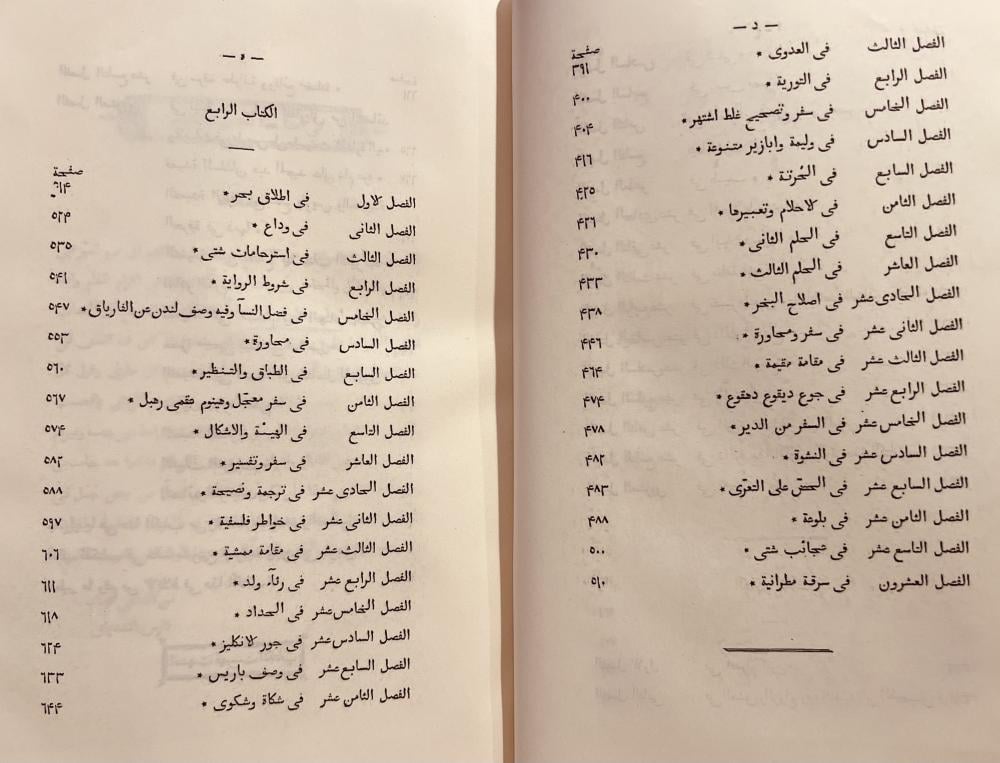 — د —
صفحة
الفصل الثالث فى العدوى * ٣٩١
الفصل الرابع فى التورية * ٤٠٠
الفصل الخامس فى سفر وتصحيح غلط اشتهر * ٤٠٤
الفصل السادس فى وليمة وابازير متنوعة * ٤١٦
الفصل السابع فى الحُرتة * ٤٢٥
الفصل الثامن فى الاحلام وتعبيرها * ٤٢٦
الفصل التاسع فى الحلم الثانى * ٤٣٠
الفصل العاشر فى الحلم الثالث * ٤٣٣
الفصل الحادى عشر فى اصلاح البخر * ٤٣٨
الفصل الثانى عشر فى سفر ومحاورة * ٤٤٦
الفصل الثالث عشر فى مقامة مقيمة * ٤٦٤
الفصل الرابع عشر فى جوع ديقوع دهقوع * ٤٧٤
الفصل الخامس عشر فى السفر من الدير * ٤٧٨
الفصل السادس عشر فى النشوة * ٤٨٢
الفصل السابع عشر فى الحضّ على التعرّى * ٤٨٣
الفصل الثامن عشر فى بلوعة * ٤٨٨
الفصل التاسع عشر فى عجائب شتى * ٥٠٠
الفصل العشرون فى سرقة مطرانية * ٥١٠
— و —
الكتاب الرابع
صفحة
الفصل الاول فى اطلاق بحر *
الفصل الثانى فى وداع * ٥٢٤
الفصل الثالث فى استرحامات شتى * ٥٣٥
الفصل الرابع فى شروط الرواية * ٥٤١
الفصل الخامس فى فضل النسآ وفيه وصف لندن عن الفارياق * ٥٤٧
الفصل السادس فى محاورة * ٥٥٣
الفصل السابع فى الطباق والتنظير * ٥٦٠
الفصل الثامن فى سفر معجّل وهينوم عقمى رهبل * ٥٦٧
الفصل التاسع فى الهيئة والاشكال * ٥٧٤
الفصل العاشر فى سفر وتفسير * ٥٨٢
الفصل الحادى عشر فى ترجمة ونصيحة * ٥٨٨
الفصل الثانى عشر فى خواطر فلسفية * ٥٩٧
الفصل الثالث عشر فى مقامة ممشية * ٦٠٦
الفصل الرابع عشر فى رثآء ولد * ٦١١
الفصل الخامس عشر فى الحداد * ٦١٨
الفصل السادس عشر فى جور الانكليز * ٦٢٤
الفصل السابع عشر فى وصف باريس * ٦٣٣
الفصل الثامن عشر فى شكاة وشكوى * ٦٤٤